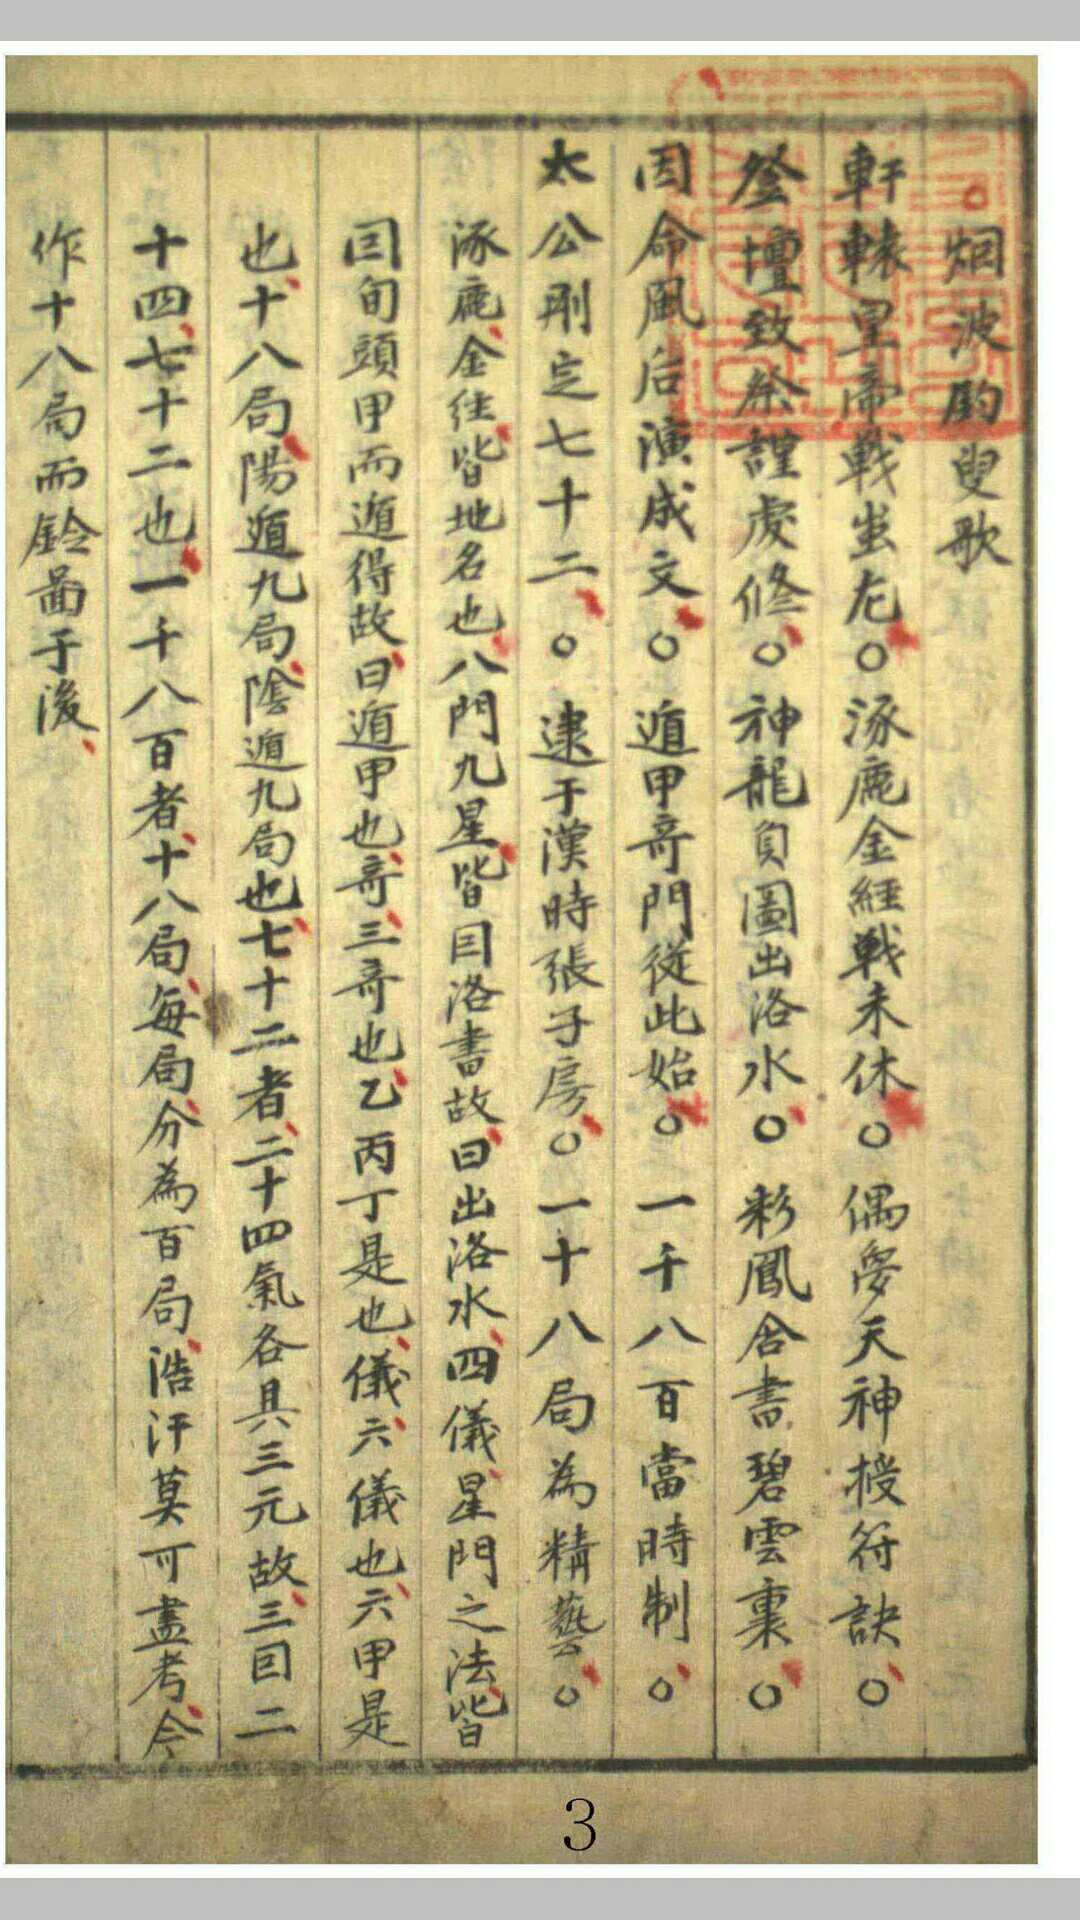 。烟波釣叟歌
軒轅皇帝戰蚩尤○涿鹿金經戰未休○偶夢天神授符訣○
登壇致祭謹虔修○神龍負圖出洛水○彩鳳含書碧雲裏○
因命風后演成文○遁甲奇門從此始○一千八百當時制○
太公刪定七十二○逮于漢時張子房○一十八局為精藝○
涿鹿金经皆地名也八門九星皆因洛書故曰出洛水四儀星門之法皆
因旬頭甲而遁得故曰遁甲也奇三奇也乙丙丁是也儀六儀也六甲是
也十八局陽遁九局陰遁九局也七十二者二十四氣各具三元故三因二
十四七十二也一千八百者十八局每局分為百局浩汗莫可盡考今
作十八局而鈴啚于後
3